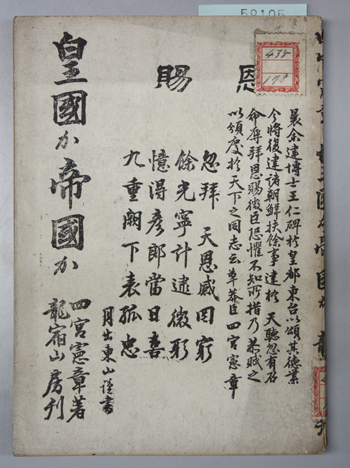 恩賜
曩余建博士王仁碑於皇都東台以頌其德業
今將復建諸朝鮮扶餘事達於 天聽忽有召
命辱拜恩賜微臣恐懼不知所措乃恭賦之
以頒廣於天下之同志云 草莽臣 四宮憲章
忽拜 天恩感罔窮
餘光寧計逮微躬
憶得彥郎當日喜
九重闕下表孤忠
月出東山謹書
皇國か帝國か
四宮憲章著
龍宿山房刊